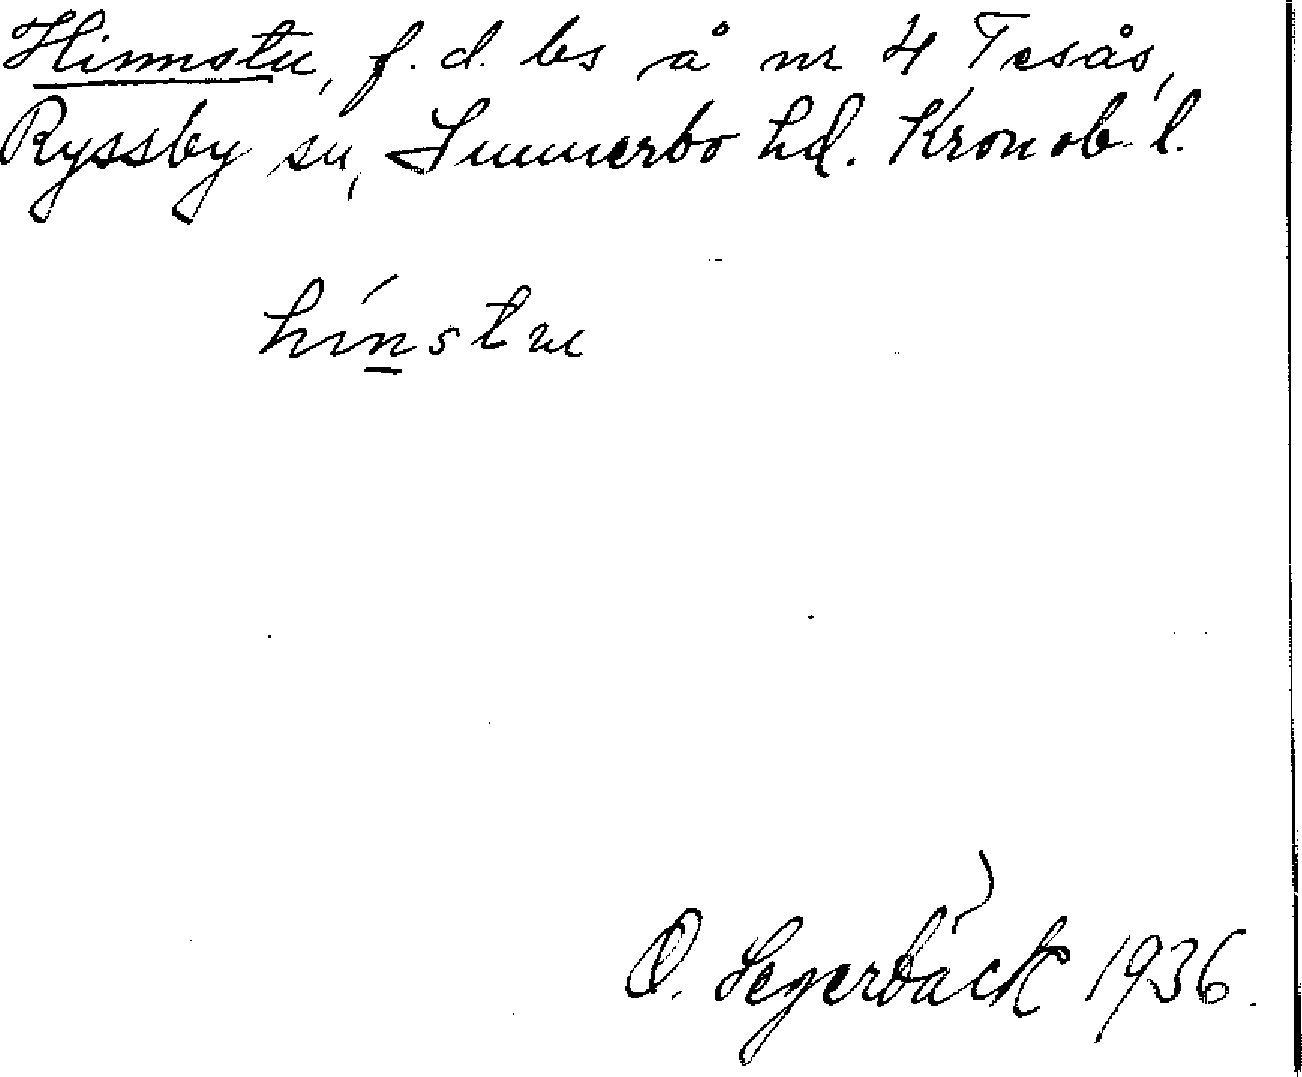 Hinnstu, f. d. bs å nr 4 Tesås,
Ryssby sn, Sunnerbo hd. Kronob. l.
hinstu
O. Segerbäck 1936.